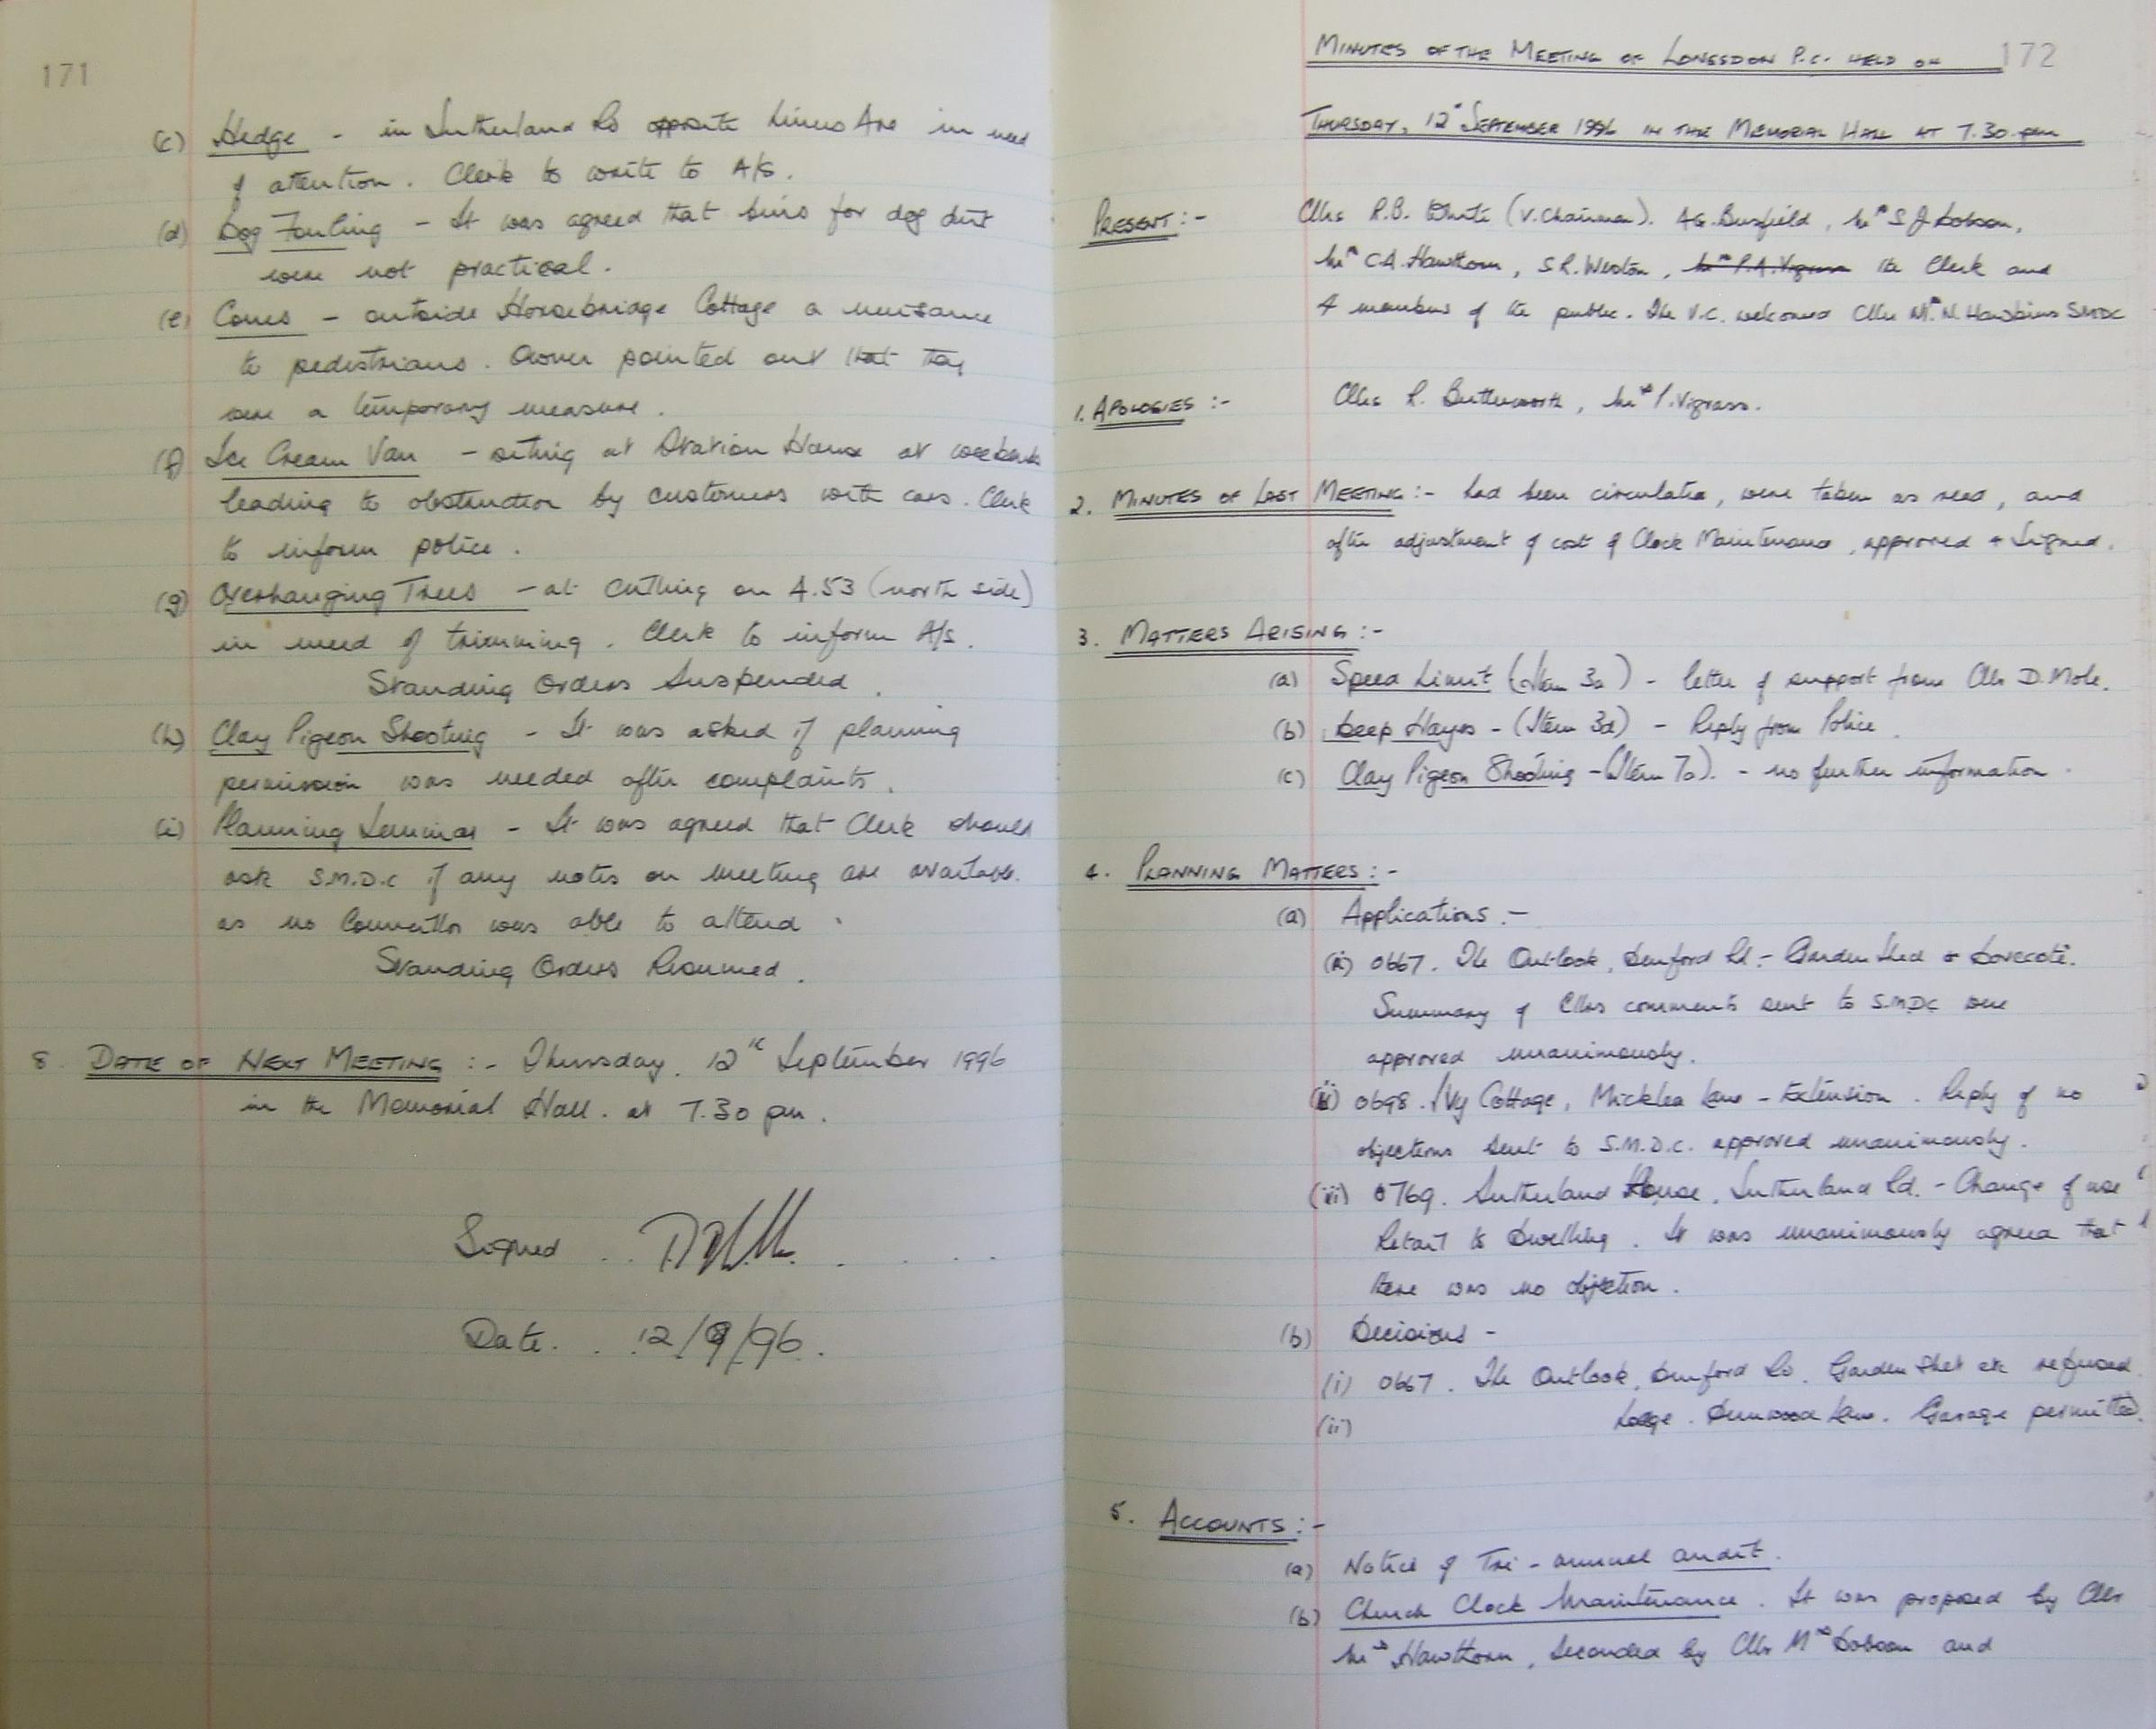 171
(c) Hedge - in Sutherland Rd opposite Limes Ave in need
of attention. Clerk to write to A/S.
(d) Dog Fouling - It was agreed that bins for dog dirt
were not practical.
(e) Cones - outside Horsebridge Cottage a nuisance
to pedestrians. Owner pointed out that they
were a temporary measure.
(f) Ice Cream Van - siting at Station House at weekends
leading to obstruction by customers with cars. Clerk
to inform police.
(g) Overhanging Trees - at cutting on A.53 (north side)
in need of trimming. Clerk to inform A/S.
Standing Orders Suspended.
(h) Clay Pigeon Shooting - It was asked if planning
permission was needed after complaints.
(i) Planning Seminar - It was agreed that Clerk should
ask S.M.D.C if any notes on meeting are available
as no Councillor was able to attend.
Standing Orders Resumed.
8. DATE OF NEXT MEETING :- Thursday. 12th September 1996
in the Memorial Hall. at 7.30 pm.
Signed
Date. 12/9/96.
MINUTES OF THE MEETING OF LONGSDON P.C. HELD ON 172
THURSDAY, 12th SEPTEMBER 1996 IN THE MEMORIAL HALL AT 7.30 pm
PRESENT:- Cllrs R.B. White (V.Chairman). A.G. Busfield, Mrs S J Dobson,
Mrs C.A. Hawthorn, S.R. Weston, Mrs P.A. Vigrass the Clerk and
4 members of the public. The V.C. welcomed Cllr Mr. N. Hawkins SMDC
1. APOLOGIES :- Cllrs R. Butterworth, Mrs P. Vigrass.
2. MINUTES OF LAST MEETING:- had been circulated, were taken as read, and
after adjustment of cost of Clock Maintenance, approved + signed.
3. MATTERS ARISING :-
(a) Speed Limit (Item 3a) - letter of support from Cllr D. Mole.
(b) Deep Hayes - (Item 3d) - Reply from Police.
(c) Clay Pigeon Shooting - (Item 7a). - no further information.
4. PLANNING MATTERS :-
(a) Applications :-
(i) 0667. The Outlook, Denford Rd. - Garden Shed + Dovecote.
Summary of Cllrs comments sent to S.M.D.C were
approved unanimously.
(ii) 0698. Ivy Cottage, Micklea Lane - Extension. Reply of no
objections sent to S.M.D.C. approved unanimously.
(iii) 0769. Sutherland House, Sutherland Rd. - Change of use
Retail to Dwelling. It was unanimously agreed that
there was no objection.
(b) Decisions -
(i) 0667. The Outlook, Denford Rd. Garden Shed etc refused.
(ii) Lodge. Dunwood Lane. Garage permitted.
5. ACCOUNTS :-
(a) Notice of Tri-annual audit.
(b) Church Clock Maintenance. It was proposed by Cllr
Mrs Hawthorn, seconded by Cllr Mrs Dobson and